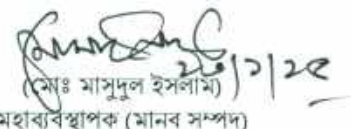 ২৩/১/২৫
(মোঃ মাসুদুল ইসলাম)
মহাব্যবস্থাপক (মানব সম্পদ)